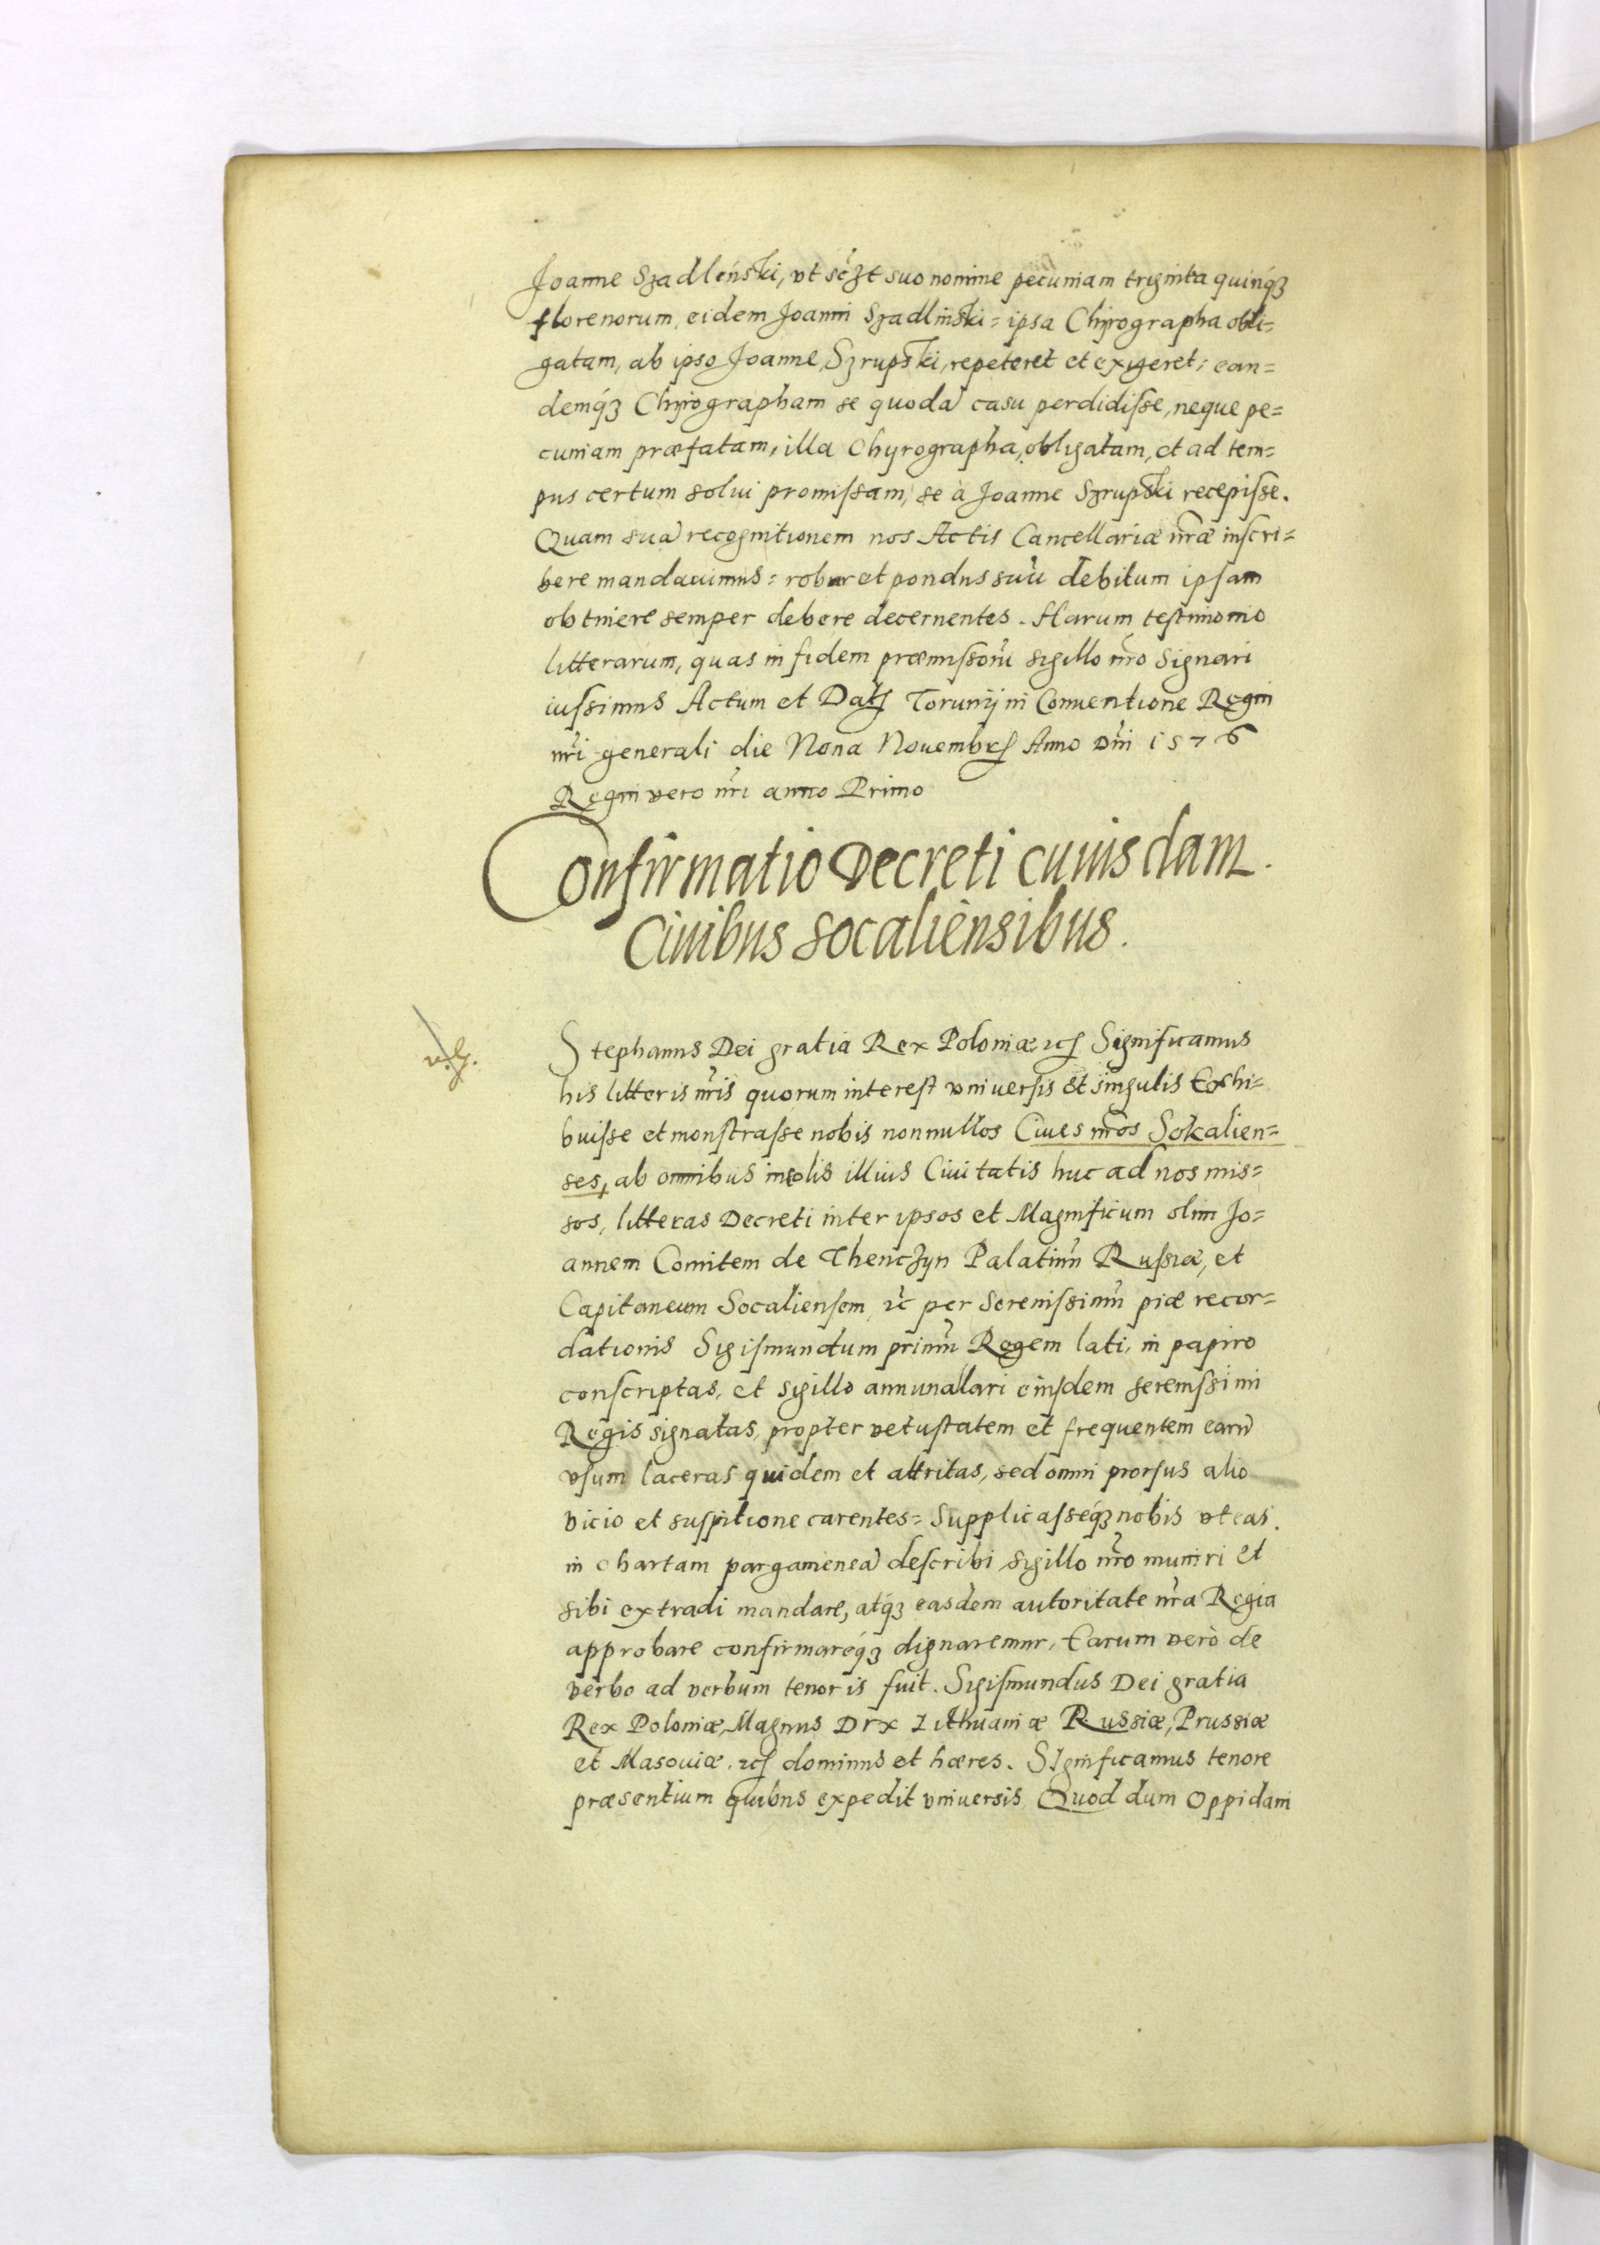 Joanne Szadleński, vt scz͛t suo nomine pecuniam triginta quinq́ʒ
florenorum, eidem Joanni Szadlinski = ipsa Chyrographa obli=
gatam, ab ipso Joanne Szrupski, repeteret et exigeret, ean=
demq́ʒ Chyrographam se quodã casu perdidiſse, neque pe=
cuniam præfatam, illa Chyrographa, obligatam, et ad tem=
pus certum solui promiſsam, se à Joanne Szrupski recepiſse.
Quam suã recognitionem nos Actis Cancellariæ nr̃æ inſcri=
bere mandauimus = robur et pondus suũ debitum ipſam
obtinere semper debere decernentes. Harum teſtimonio
litterarum, quas in fidem præmiſsorũ sigillo nr̃o signari
iuſsimus Actum et Datʒ Torunij in Conuentione Regni
nr̃i generali die Nona Nouembrʒ Anno Dñi 1576
Regni vero nr̃i anno Primo
Confirmatio Decreti cuiusdam
Ciuibus Socaliensibus.
Stephanus Dei gratia Rex Poloniæ ꝛcʒ Significamus
his litteris nr̃is quorum intereſt vniuerſis et singulis Exhi=
buiſse et monſtraſse nobis nonnullos Ciues nr̃os Sokalien=
ses, ab omnibus incolis illius Ciuitatis huc ad nos mis=
sos, litteras Decreti inter ipsos et Magnificum olim Jo=
annem Comitem de Thenczyn Palatinũ Ruſsiæ, et
Capitaneum Socalienſem, ꝛc̃ per Sereniſsimũ piæ recor=
dationis Sigiſmundum primũ Regem lati, in papiro
conscriptas, et sigillo annunallari eiuſdem sereniſsimi
Regis signatas, propter vetuſtatem et frequentem earũ
vſum laceras quidem et attritas, sed omni prorſus alio
vicio et suſpitione carentes = Supplicaſseq́ʒ nobis vt eas
in chartam pargameneã deſcribi sigillo nr̃o muniri et
sibi extradi mandare, atq́ʒ easdem autoritate nr̃a Regia
approbare confirmareq́ʒ dignaremur, Earum verò de
verbo ad verbum tenor is fuit. Sigiſmundus Dei gratia
Rex Poloniæ, Magnus Dvx Lithuaniæ Russiæ, Prussiæ
et Masouiæ ꝛcʒ dominus et hæres. Significamus tenore
præsentium quibus expedit vniuersis Quod dum Oppidani